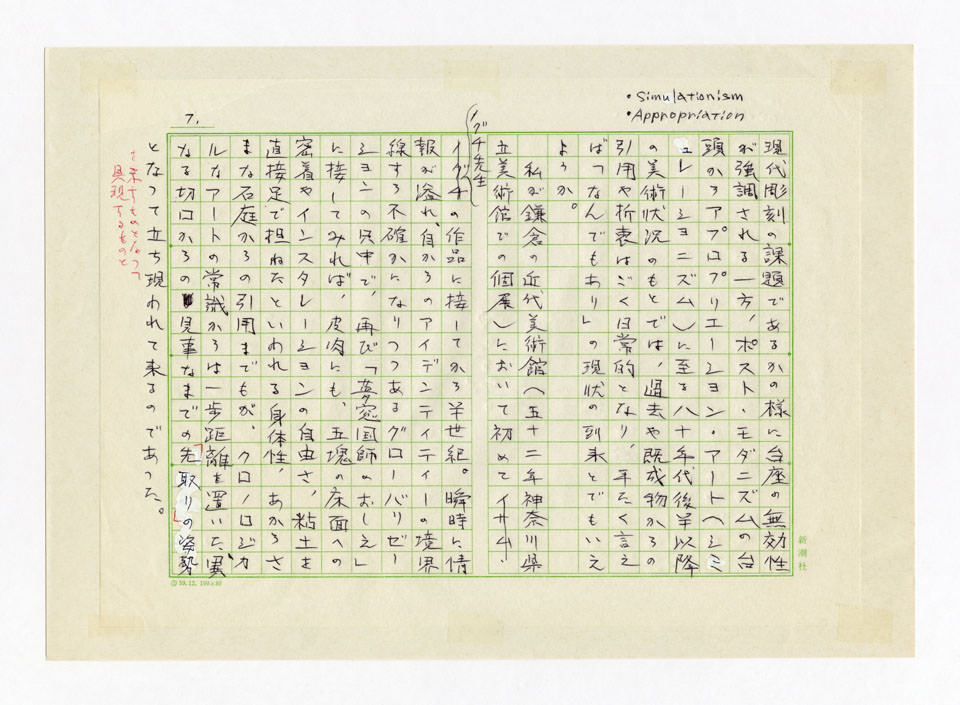 ・Simulationism
・Appropriation
7.
現代彫刻の課題であるかの様に台座の無効性
が強調される一方、ポスト・モダニズムの台
頭からアプロプリエーション・アート(シミ
ュレーショニズム)に至る八十年代後半以降
の美術状況のもとでは、過去や既成物からの
引用や折衷はごく日常的となり、平たく言え
ば「なんでもあり」の現状の到来とでもいえ
ようか。
私が鎌倉の近代美術館(五十二年神奈川県
立美術館での個展)において初めてイサム・
ノグチ先生
ノグチの作品に接してから半世紀。瞬時に情
報が溢れ、自からのアイデンティティーの境界
線すら不確かになりつつあるグローバリゼー
ションの只中で、再び「夢窓国師のおしえ」
に接してみれば、皮肉にも、五塊の床面への
密着やインスタレーションの自由さ、粘土を
直接足で担ねたといわれる身体性、あからさ
まな石庭からの引用までもが、クロノロジカ
ルなアートの常識からは一歩距離を置いた、異
なる切口からの見事なまでの先取りの姿勢
となって立ち現われて来るのであった。
具現するものと
新潮社